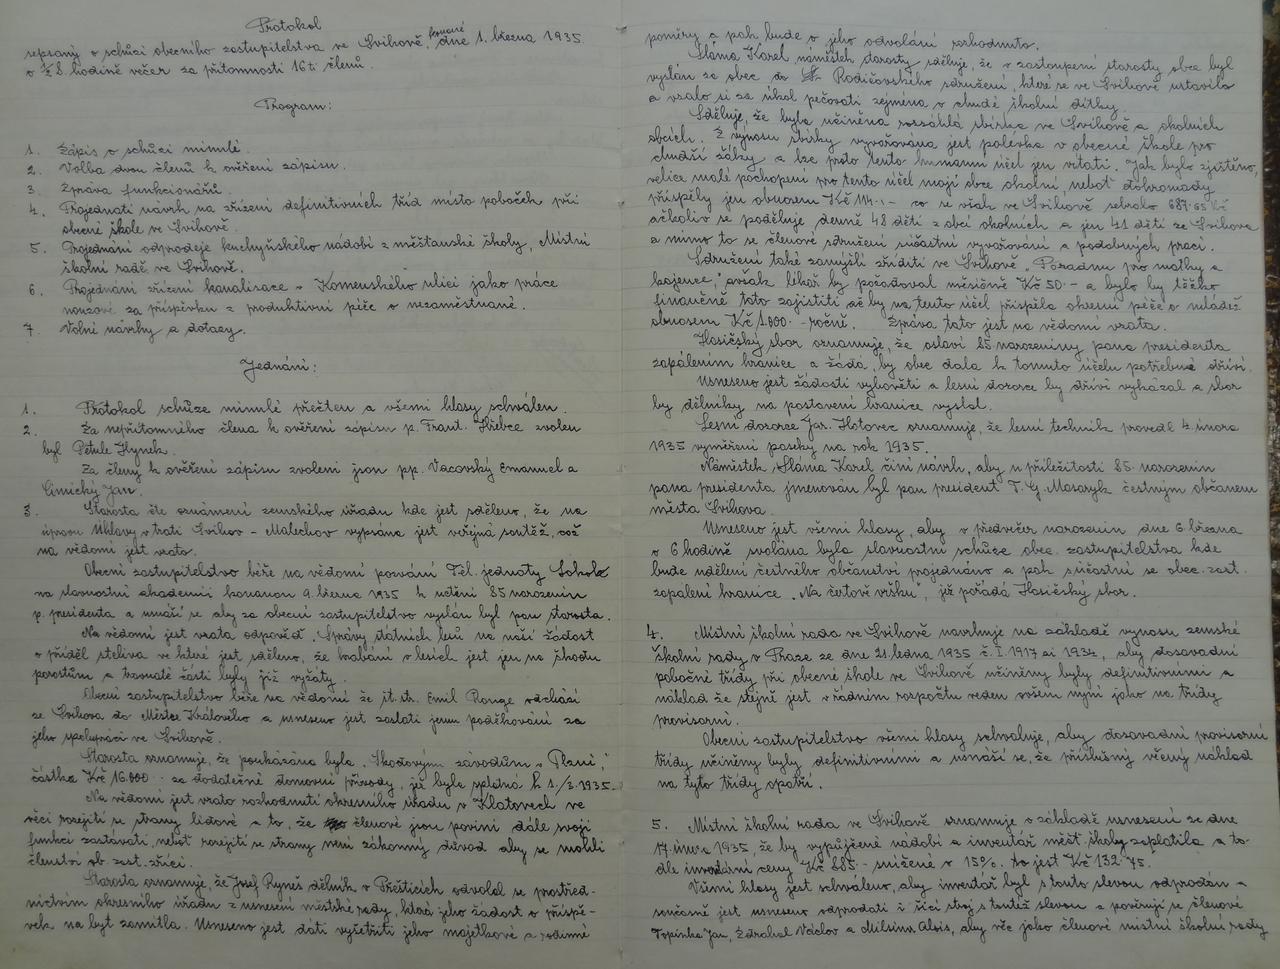 Protokol
sepsaný o schůzi obecního zastupitelstva ve Švihově, konané dne 1. března 1935
o ½ 8. hodině večer za přítomnosti 16ti členů.
Program:
1. Zápis o schůzi minulé.
2. Volba dvou členů k ověření zápisu.
3. Zpráva funkcionářů.
4. Projednati návrh na zřízení definitivních tříd místo poboček při
obecné škole ve Švihově.
5. Projednání odprodeje kuchyňského nádobí z měšťanské školy, Místní
školní radě ve Švihově.
6. Projednání zřízení kanalisace v Komenského ulici jako práce
nouzové za příspěvku z produktivní péče o nezaměstnané.
7. Volní návrhy a dotazy.
Jednání:
1. Protokol schůze minulé přečten a všemi hlasy schválen.
2. Za nepřítomného člena k ověření zápisu p. Frant. Hřebce zvolen
byl Petule Hynek.
Za členy k ověření zápisu zvoleni jsou pp. Vacovský Emanuel a
Cimický Jan.
3. Starosta čte oznámení zemského úřadu kde jest sděleno, že na
úpravu Úhlavy v trati Švihov - Malechov vypsána jest veřejná soutěž, což
na vědomí jest vzato.
Obecní zastupitelstvo béře na vědomí pozvání Těl. jednoty Sokol
na slavnostní akademii konanou 9. března 1935 k uctění 85 narozenin
p. presidenta a usnáší se aby za obecní zastupitelstvo vyslán byl pan starosta.
Na vědomí jest vzata odpověď "Správy státních lesů na naši žádost
o příděl steliva ve které jest sděleno, že hrabání v lesích jest jen na škodu
porostům a travnaté části byly již vyžáty.
Obecní zastupitelstvo béře na vědomí že št. st. Emil Runge odchází
ze Švihova do Městce Králového a usneseno jest zaslati jemu poděkování za
jeho spolupráci ve Švihově.
Starosta oznamuje, že poukázána byla "Škodovým závodům v Plzni",
částka Kč 16.000·- za dodatečné domovní přívody, jež byla splatná k 1./3. 1935.
Na vědomí jest vzato rozhodnutí okresního úřadu v Klatovech ve
věci rozejití se strany lidové a to, že členové jsou povini dále svoji
funkci zastávati, neboť rozejití se strany není zákonný důvod aby se mohli
členství ob. zast. zříci.
Starosta oznamuje, že Josef Ryneš dělník v Přešticích odvolal se prostřed-
nictvím okresního úřadu z usnesení městské rady, která jeho žádost o příspě-
vek na byt zamítla. Usneseno jest dáti vyšetřiti jeho majetkové a rodinné
poměry a pak bude o jeho odvolání rozhodnuto.
Sláma Karel náměstek starosty sděluje, že v zastoupení starosty obce byl
vyslán za obec do Rodičovského sdružení, které se ve Švihově ustavilo
a vzalo si za úkol pečovati zejména o chudé školní dítky.
Sděluje, že byla učiněna rozsáhlá sbírka ve Švihově a okolních
obcích. Z výnosu sbírky vyvařována jest polévka v obecné škole pro
chudší žáky a lze proto tento humanní účel jen vítati. Jak bylo zjištěno,
velice malé pochopení pro tento účel mají obce okolní neboť dohromady
přispěly jen obnosem Kč 114.- co se však ve Švihově sebralo 687·65 Kč
ačkoliv se poděluje, denně 48 dětí z obcí okolních a jen 41 dětí ze Švihova
a mimo to se členové sdružení súčastní vyvařování a podobných prací.
Sdružení také zamýšlí zříditi ve Švihově "Poradnu pro matky a
kojence", avšak lékař by požadoval měsíčně Kč 50·- a bylo by těžko
finančně toto zajistiti ač by na tento účel přispěla okresní péče o mládež
obnosem Kč 1.000·- ročně. Zpráva tato jest na vědomí vzata.
Hasičský sbor oznamuje, že oslaví 85 narozeniny pana presidenta
zapálením hranice a žádá, by obec dala k tomuto účelu potřebné dříví.
Usneseno jest žádosti vyhověti a lesní dozorce by dříví vykázal a sbor
by dělníky na postavení hranice vyslal.
Lesní dozorce Jar. Hotovec oznamuje, že lesní technik provedl 4. února
1935 vyměření paseky na rok 1935.
Náměstek Sláma Karel činí návrh, aby u příležitosti 85. narozenin
pana presidenta jmenován byl pan president T. G. Masaryk čestným občanem
města Švihova.
Usneseno jest všemi hlasy, aby v předvečer narozenin dne 6 března
o 6 hodině svolána byla slavnostní schůze obec. zastupitelstva kde
bude udělení čestného občanství projednáno a pak súčastní se obec. zast.
zapálení hranice "Na čertově vršku", již pořádá Hasičský sbor.
4. Místní školní rada ve Švihově navrhuje na základě výnosu zemské
školní rady v Praze ze dne 21. ledna 1935 č. I 1917 ai 1934, aby dosavadní
pobočné třídy při obecné škole ve Švihově učiněny byly definitivními a
náklad že stejně jest v řádném rozpočtu veden ovšem nyní jako na třídy
provisorní.
Obecní zastupitelstvo všemi hlasy schvaluje, aby dosavadní provisorní
třídy učiněny byly definitivními a usnáší se, že příslušný věcný náklad
na tyto třídy opatří.
5. Místní školní rada ve Švihově oznamuje v základě usnesení ze dne
17. února 1935, že by vypůjčené nádobí a inventář měšť. školy zaplatila a to-
dle inventární ceny Kč 885.- snížené o 15%. to jest Kč 132·75.
Všemi hlasy jest schváleno, aby inventář byl s touto slevou odprodán -
současně jest usneseno odprodati i šicí stroj s toutéž slevou a pověřují se členové
Topinka Jan, Zdráhal Václav a Milsimr Alois, aby věc jako členové místní školní rady